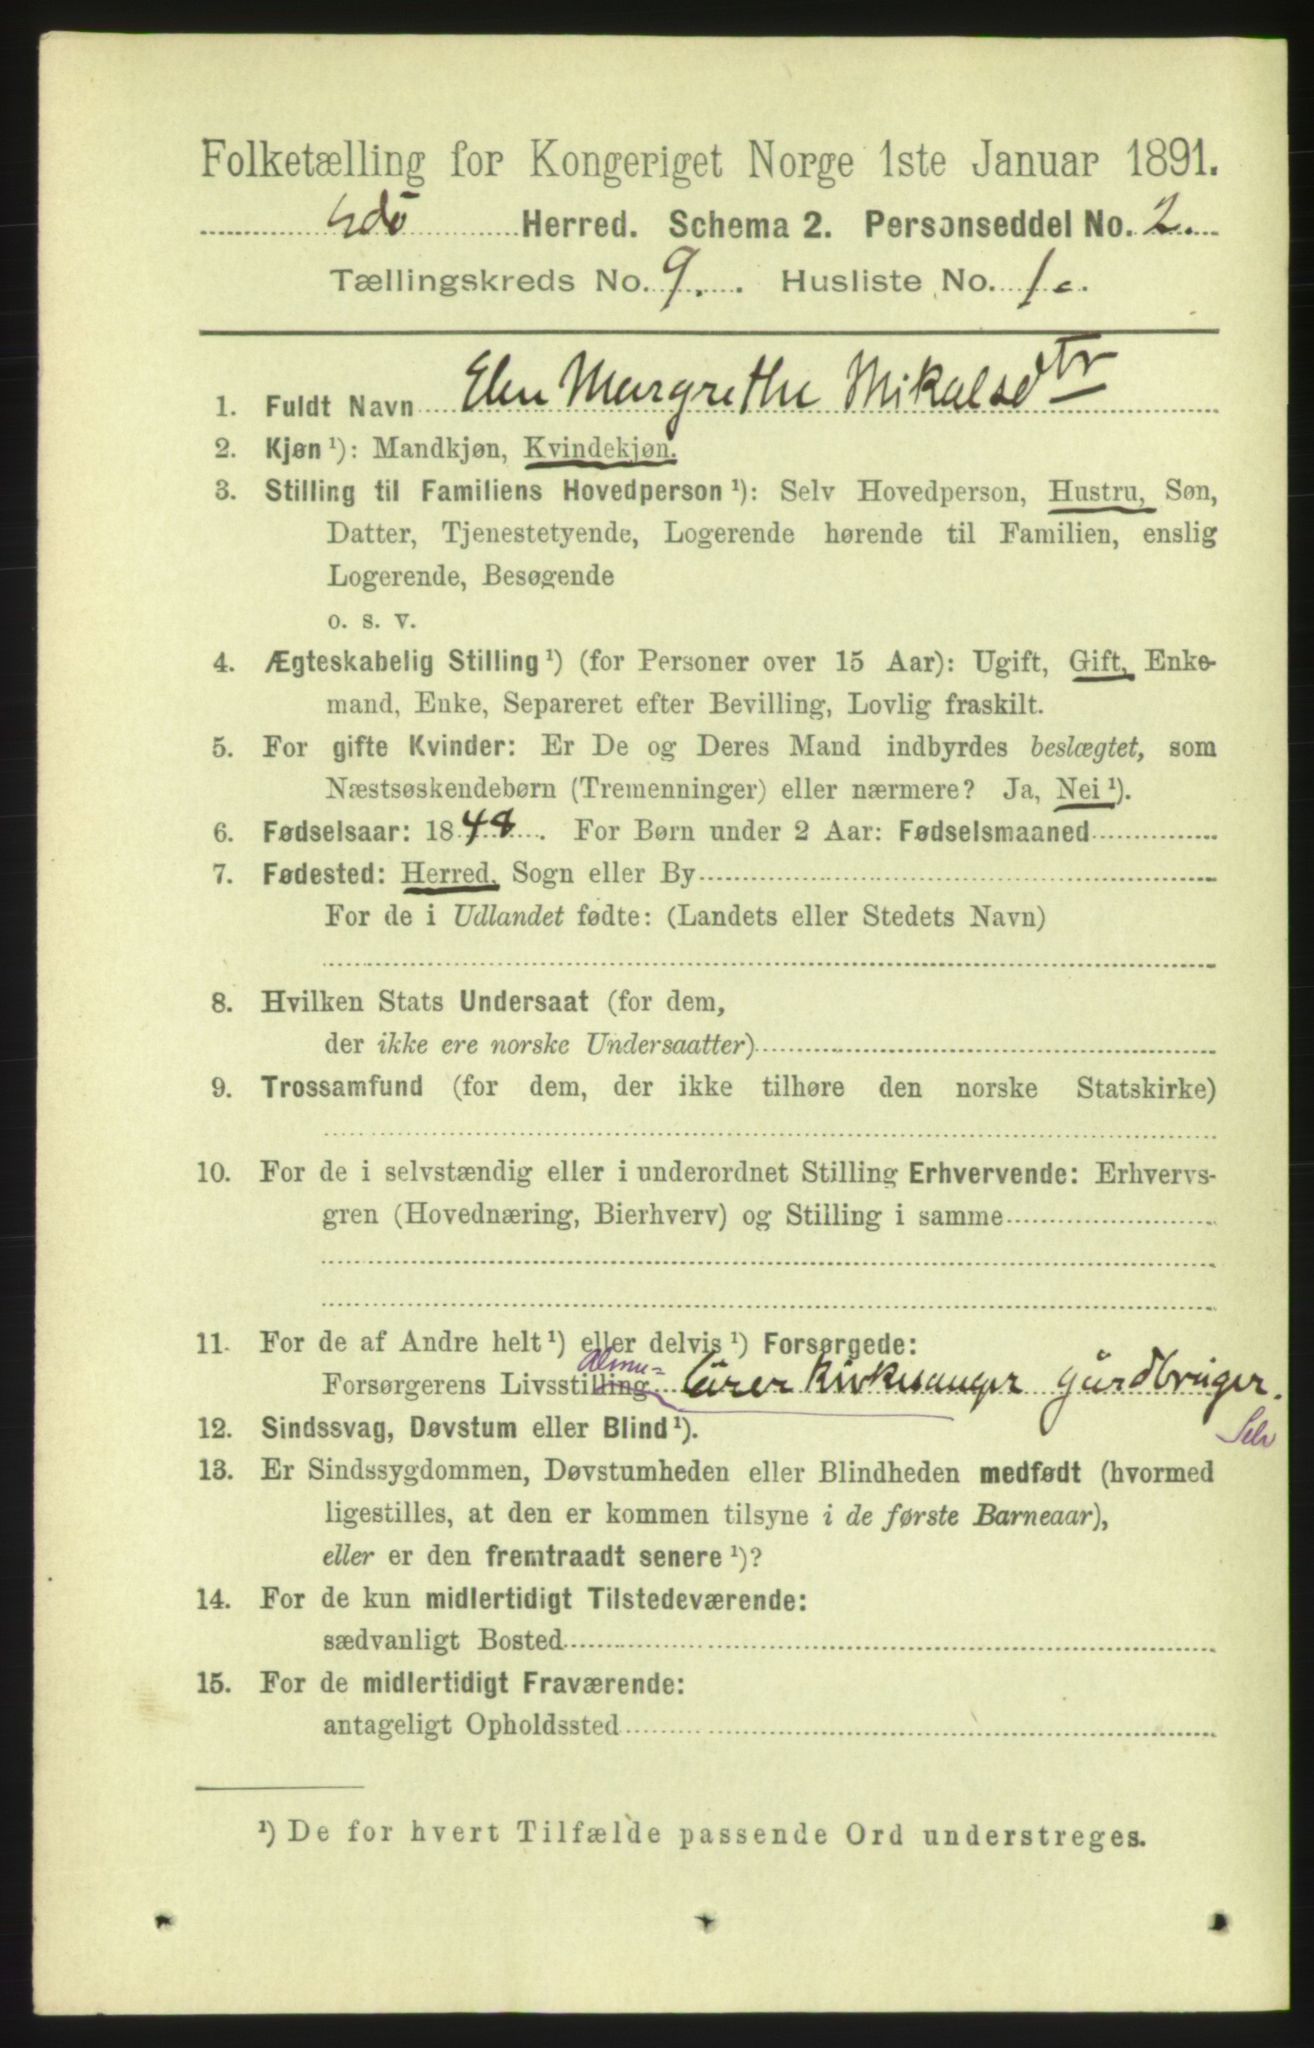 Folketælling for Kongeriget Norge 1ste Januar 1891.
Edö Herred. Schema 2. Personseddel No. 2.
Tællingskreds No. 9. Husliste No. 1.
1. Fuldt Navn Elen Margrethe Mikalsdtr
2. Kjøn ¹): Mandkjøn, Kvindekjøn.
3. Stilling til Familiens Hovedperson ¹): Selv Hovedperson, Hustru, Søn,
Datter, Tjenestetyende, Logerende hørende til Familien, enslig
Logerende, Besøgende
o. s. v.
4. Ægteskabelig Stilling ¹) (for Personer over 15 Aar): Ugift, Gift, Enke-
mand, Enke, Separeret efter Bevilling, Lovlig fraskilt.
5. For gifte Kvinder: Er De og Deres Mand indbyrdes beslægtet, som
Næstsøskendebørn (Tremenninger) eller nærmere? Ja, Nei ¹).
6. Fødselsaar: 1848. For Børn under 2 Aar: Fødselsmaaned
7. Fødested: Herred, Sogn eller By
For de i Udlandet fødte: (Landets eller Stedets Navn)
8. Hvilken Stats Undersaat (for dem,
der ikke ere norske Undersaatter)
9. Trossamfund (for dem, der ikke tilhøre den norske Statskirke)
10. For de i selvstændig eller i underordnet Stilling Erhvervende: Erhvervs-
gren (Hovednæring, Bierhverv) og Stilling i samme
11. For de af Andre helt ¹) eller delvis ¹) Forsørgede:
Almu-
Forsørgerens Livsstilling lærer Kirkesanger gårdbruger.
Selv
12. Sindssvag, Døvstum eller Blind ¹).
13. Er Sindssygdommen, Døvstumheden eller Blindheden medfødt (hvormed
ligestilles, at den er kommen tilsyne i de første Barneaar),
eller er den fremtraadt senere ¹)?
14. For de kun midlertidigt Tilstedeværende:
sædvanligt Bosted
15. For de midlertidigt Fraværende:
antageligt Opholdssted
¹) De for hvert Tilfælde passende Ord understreges.